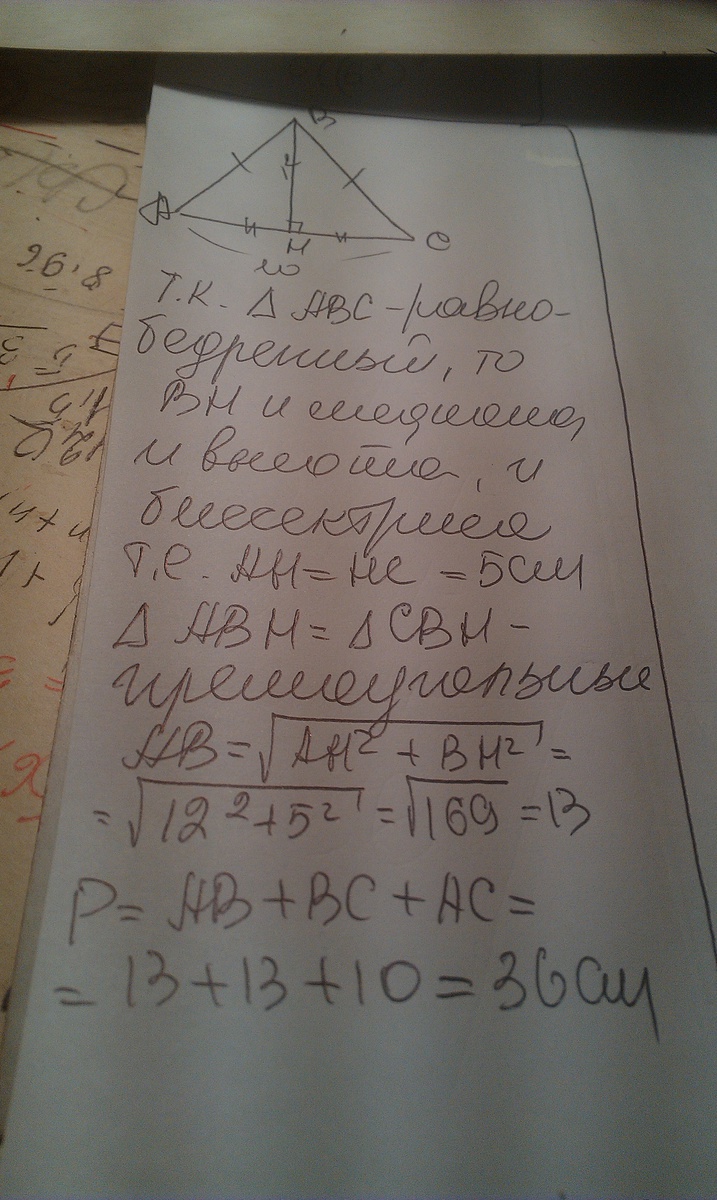 B
A
H
C
10
Т.К. Δ ABC - равно-
бедренный, то
BH и медиана,
и высота, и
биссектриса
т.е. AH = HC = 5см
Δ ABH = Δ CBH -
прямоугольные
AB = √AH² + BH² =
= √12² + 5² = √169 = 13
P = AB + BC + AC =
= 13 + 13 + 10 = 36 см
8,96